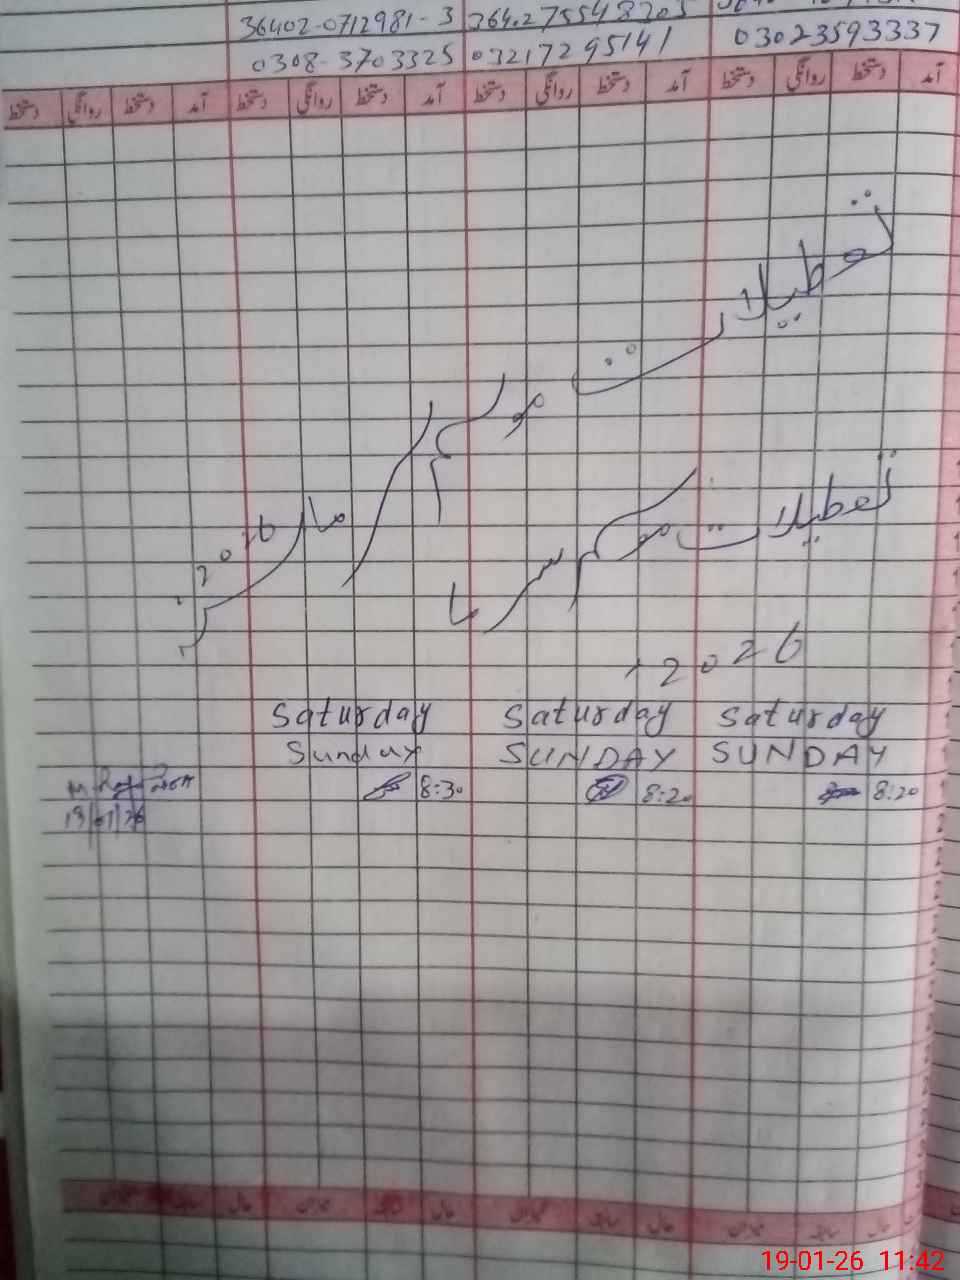 36402-0712981-3
0308-3703325 03217295141 03023593337
آمد دستخط روانگی دستخط آمد دستخط روانگی دستخط آمد دستخط روانگی دستخط آمد دستخط روانگی دستخط
تعطیلات موسم سرما 2026
تعطیلات موسم سرما
2026
Saturday Saturday Saturday
Sunday SUNDAY SUNDAY
8:30 8:20 8:20
19/01/26
19-01-26 11:42